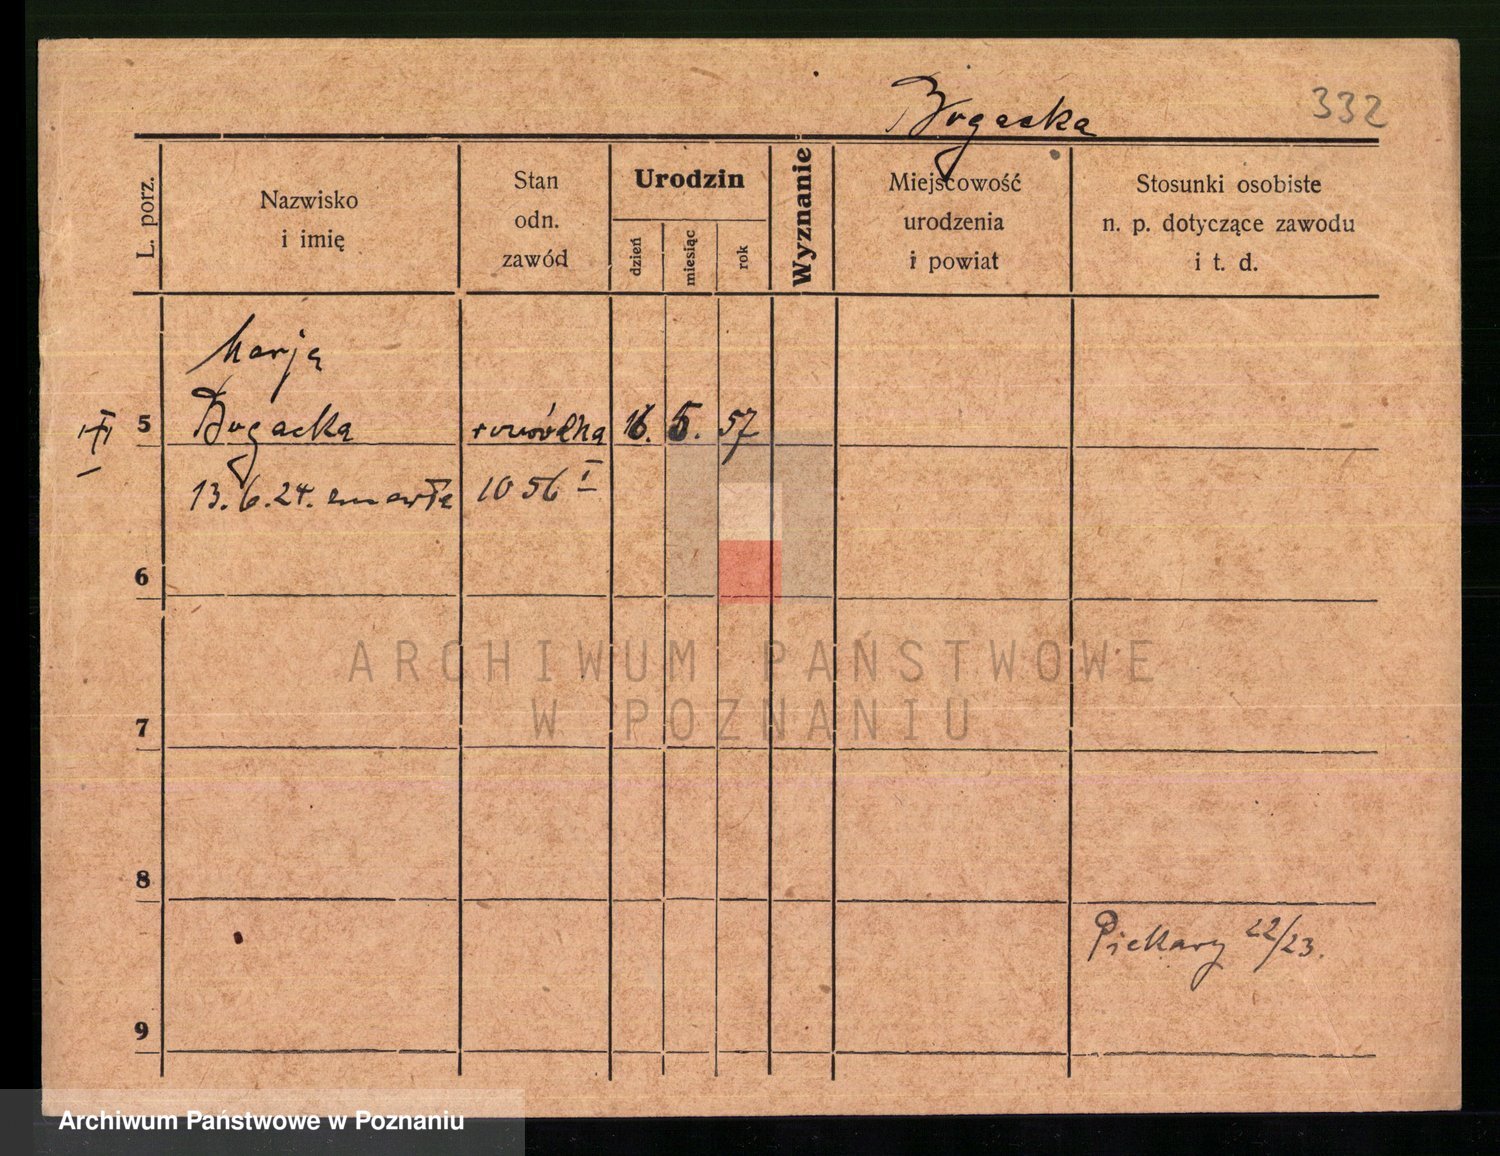 Bogacka 332
L. porz.
Nazwisko
i imię
Stan
odn.
zawód
Urodzin
dzień
miesiąc
rok
Wyznanie
Miejscowość
urodzenia
i powiat
Stosunki osobiste
n. p. dotyczące zawodu
i t. d.
Marja
5 Bogacka 16. 5. 57
13.6.24. zmarła 1056 I
6
7
8
Piekary 22/23.
9
ARCHIWUM PAŃSTWOWE
W POZNANIU
Archiwum Państwowe w Poznaniu